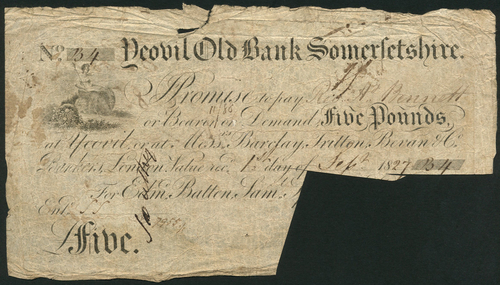 No. B4 Yeovil Old Bank Somersetshire.
I Promise to pay Bennett
or Bearer on Demand Five Pounds,
at Yeovil, or at Messrs. Barclay, Tritton, Bevan & Co.
Bankers, London Value recd. 1st day of Sept 1827 B4
For Edmd. Batten, Saml.
Entd.
£Five.